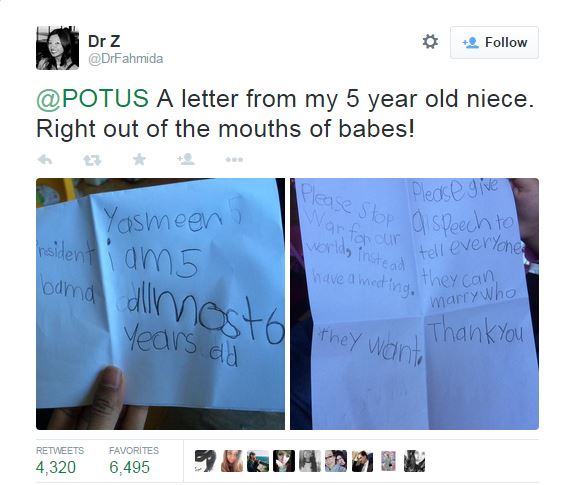 Dr Z
@DrFahmida
Follow
@POTUS A letter from my 5 year old niece.
Right out of the mouths of babes!
Yasmeen 5
resident i am 5
bama allmost 6
years old
Please Stop
War for our
world, instead
have a meeting.
Please give
a speech to
tell everyone
they can
marry who
they want.
Thank you
RETWEETS
4,320
FAVORITES
6,495